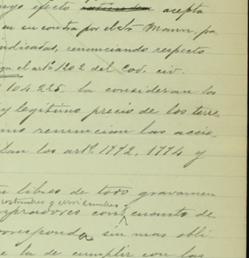 efecto acepta
en su contra por el Sto Mann, pa
indicadas, renunciando respecto
el artº 1202 del Cod. civ.
104.225. la consideran los
y legítimo precio de los terre
renuncian las accio
los artºs 1772, 1774 y
libres de todo gravamen
costumbres y servidumbres
compradores con cuanto de
corresponda sin mas obli
la de cumplir con las